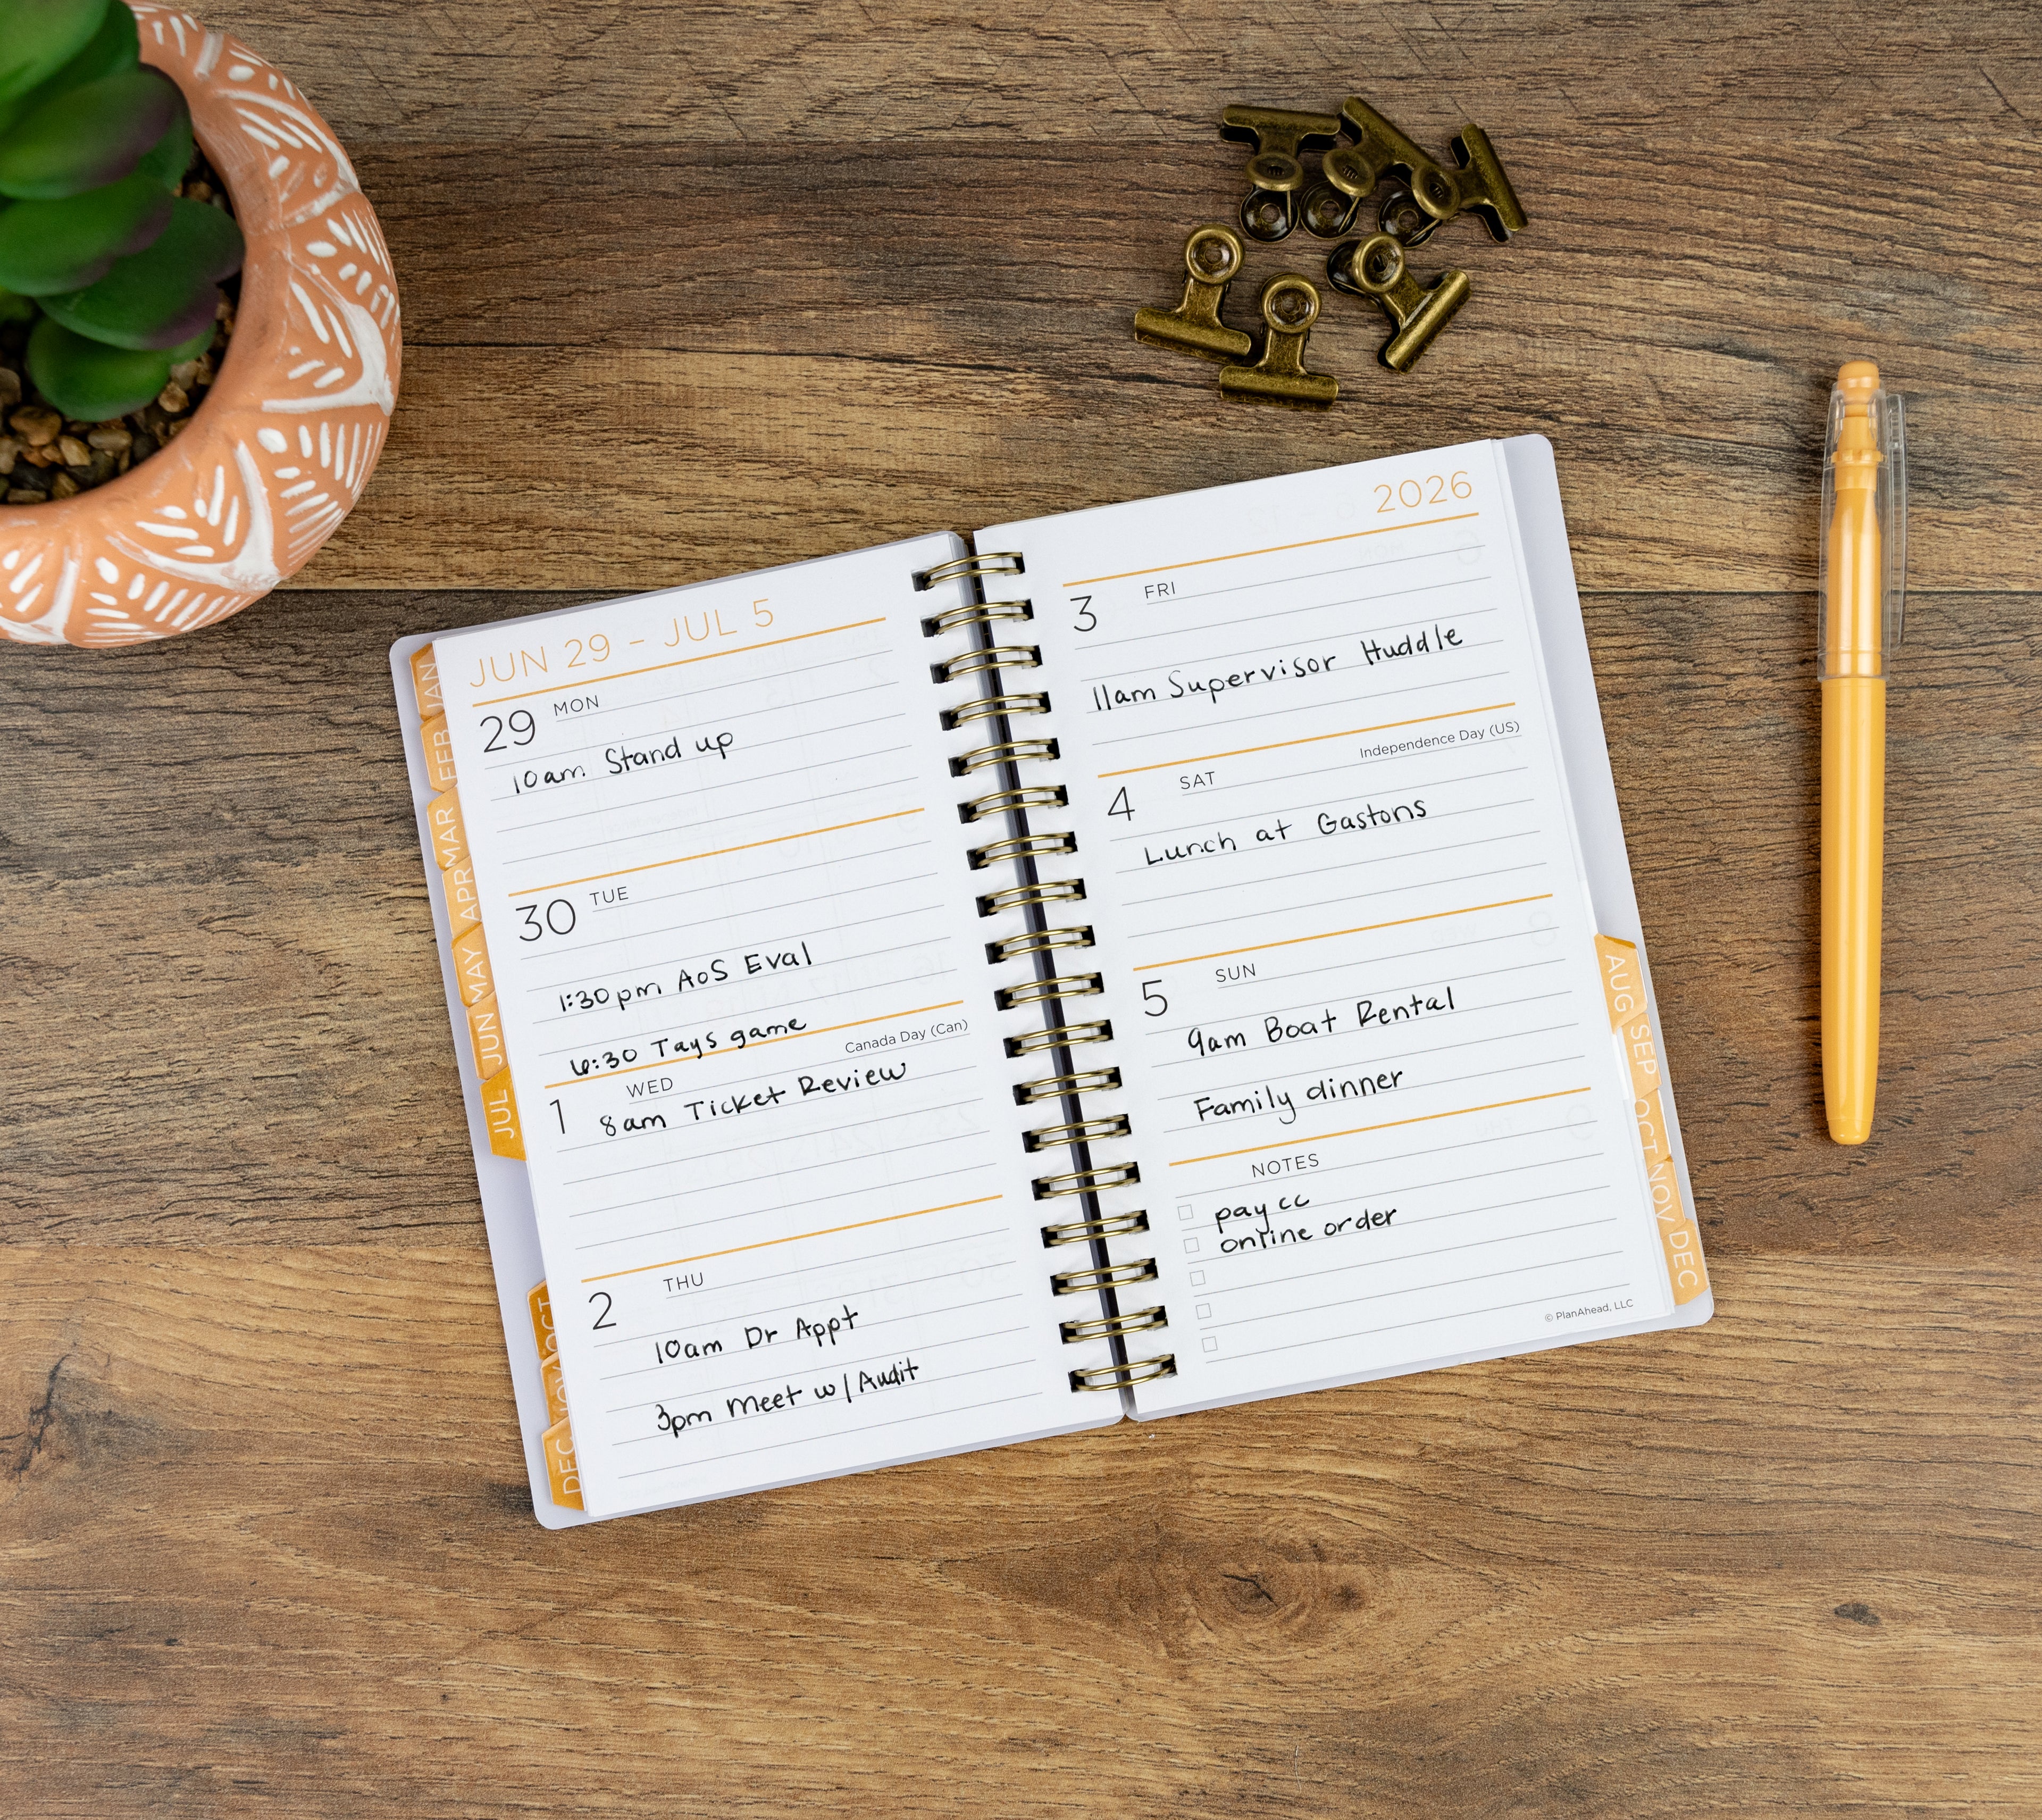 JUN 29 - JUL 5
29 MON
10am Stand up
30 TUE
1:30pm AoS Eval
6:30 Tays game
Canada Day (Can)
1 WED
8am Ticket Review
2 THU
10am Dr Appt
3pm Meet w/Audit
JAN
FEB
MAR
APR
MAY
JUN
JUL
OCT
NOV
DEC
2026
3 FRI
11am Supervisor Huddle
Independence Day (US)
4 SAT
Lunch at Gastons
5 SUN
9am Boat Rental
Family dinner
NOTES
pay cc
online order
© PlanAhead, LLC
AUG
SEP
OCT
NOV
DEC